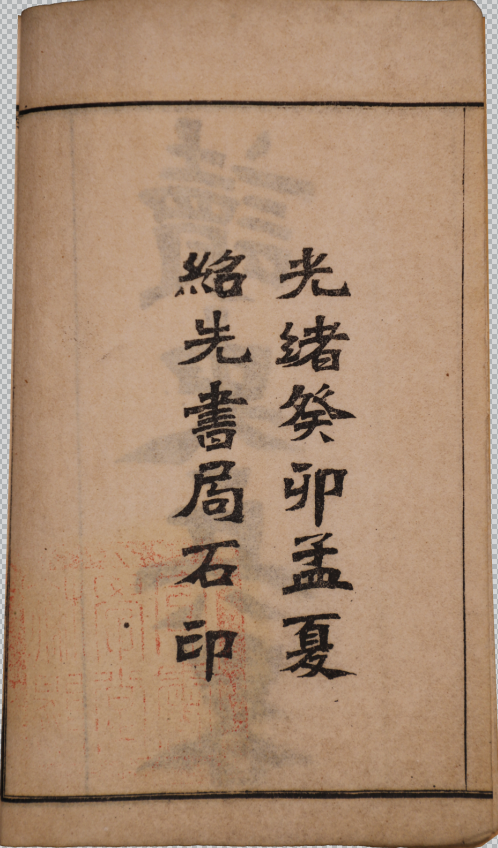 光緒癸卯孟夏
紹先書局石印